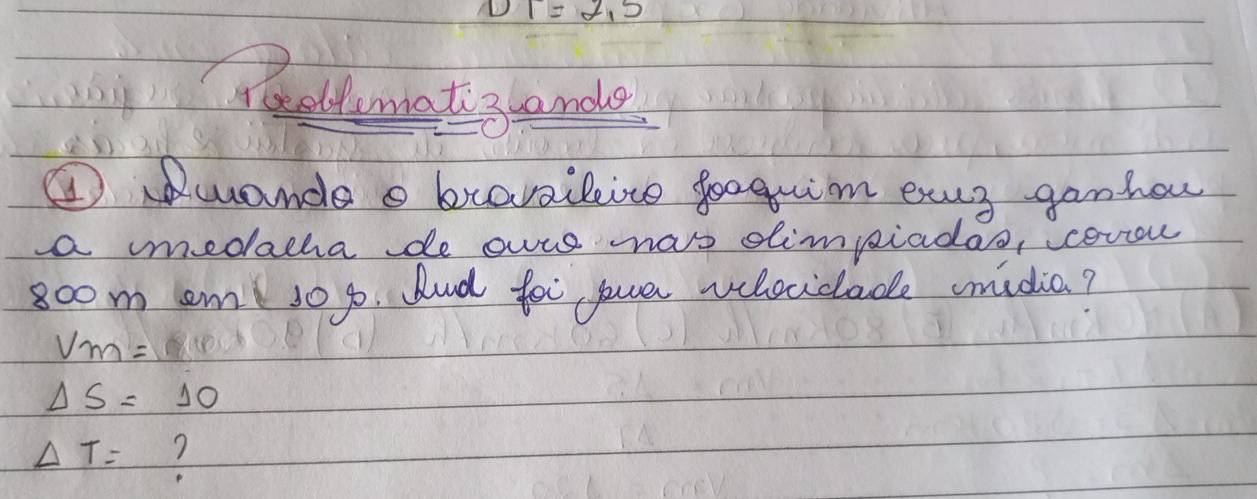 DT= 2,5
Problematizando
1 Quando o brasileiro Joaquim cruz ganhou
a medalha de ouro nas olimpiadas, correu
800m em 10s. Qual foi sua velocidade média?
Vm=
ΔS= 10
ΔT= ?